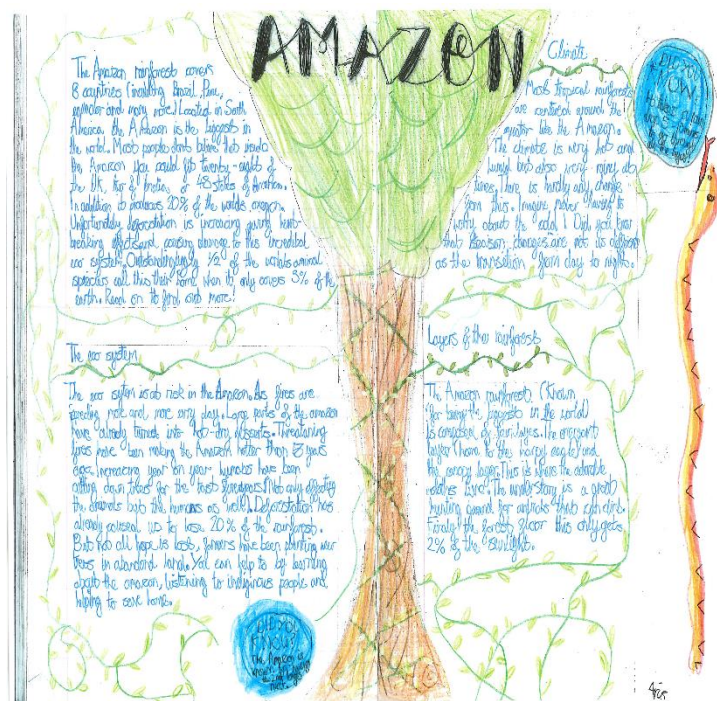 AMAZON
The Amazon rainforest covers
8 countries (including Brazil, Peru,
and many more.) Located in South
America the Amazon is the biggest in
the world. Most people dont belive that inside
the Amazon you could fit twenty-eight of
the UK, that of 48 states of
In addition to produces 20% of the worlds oxygen.
Unfortunately deforestation is increasing giving heart-
breaking effects and causing damage to this incredible
eco system. Outstandingly 1/2 of the worlds animal
species call this their home when it only covers 3% of the
earth. Read on to find out more!
Climate
Most tropical rainforests
are centered around the
equator like the Amazon.
The climate is very hot and
humid but also very rainy at
times. There is hardly any change
from this. Imagine never having to
worry about the cold! Did you know
that season changes are not as different
as the transetion from day to night.
DID YOU
KNOW
The eco system
The eco sytem is at risk in the Amazon. As fires are
more and more every day. Large parts of the amazon
have already turned into hot-dry deserts. Threatening
fires have been making the Amazon hotter than years
ago, increasing year on year, humans have been
cutting down trees for the Not only effecting
the animals but the humans as well). Deforestation has
already caused us to lose 20% of the rainforests.
But not all hope is lost, farmers have been planting new
trees in abandond land. You can help to by learning
about the amazon, listening to indiginous people and
helping to save
Layers of the rainforests
The Amazon rainforests (Known
for being the biggests in the world)
is composed of four layers. The emergent
layer (home to the harpy eagle) and
the canopy layer. This is where the adorable
live. The understory is a great
hunting ground for animals that can climb.
Finaly the forests floor this only gets
2% of the sunlight.
DID YOU
KNOW?
The Amazon is